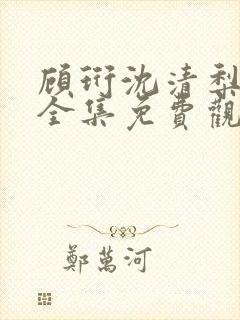 顾珩沈清梨
全集免費觀
鄭萬河